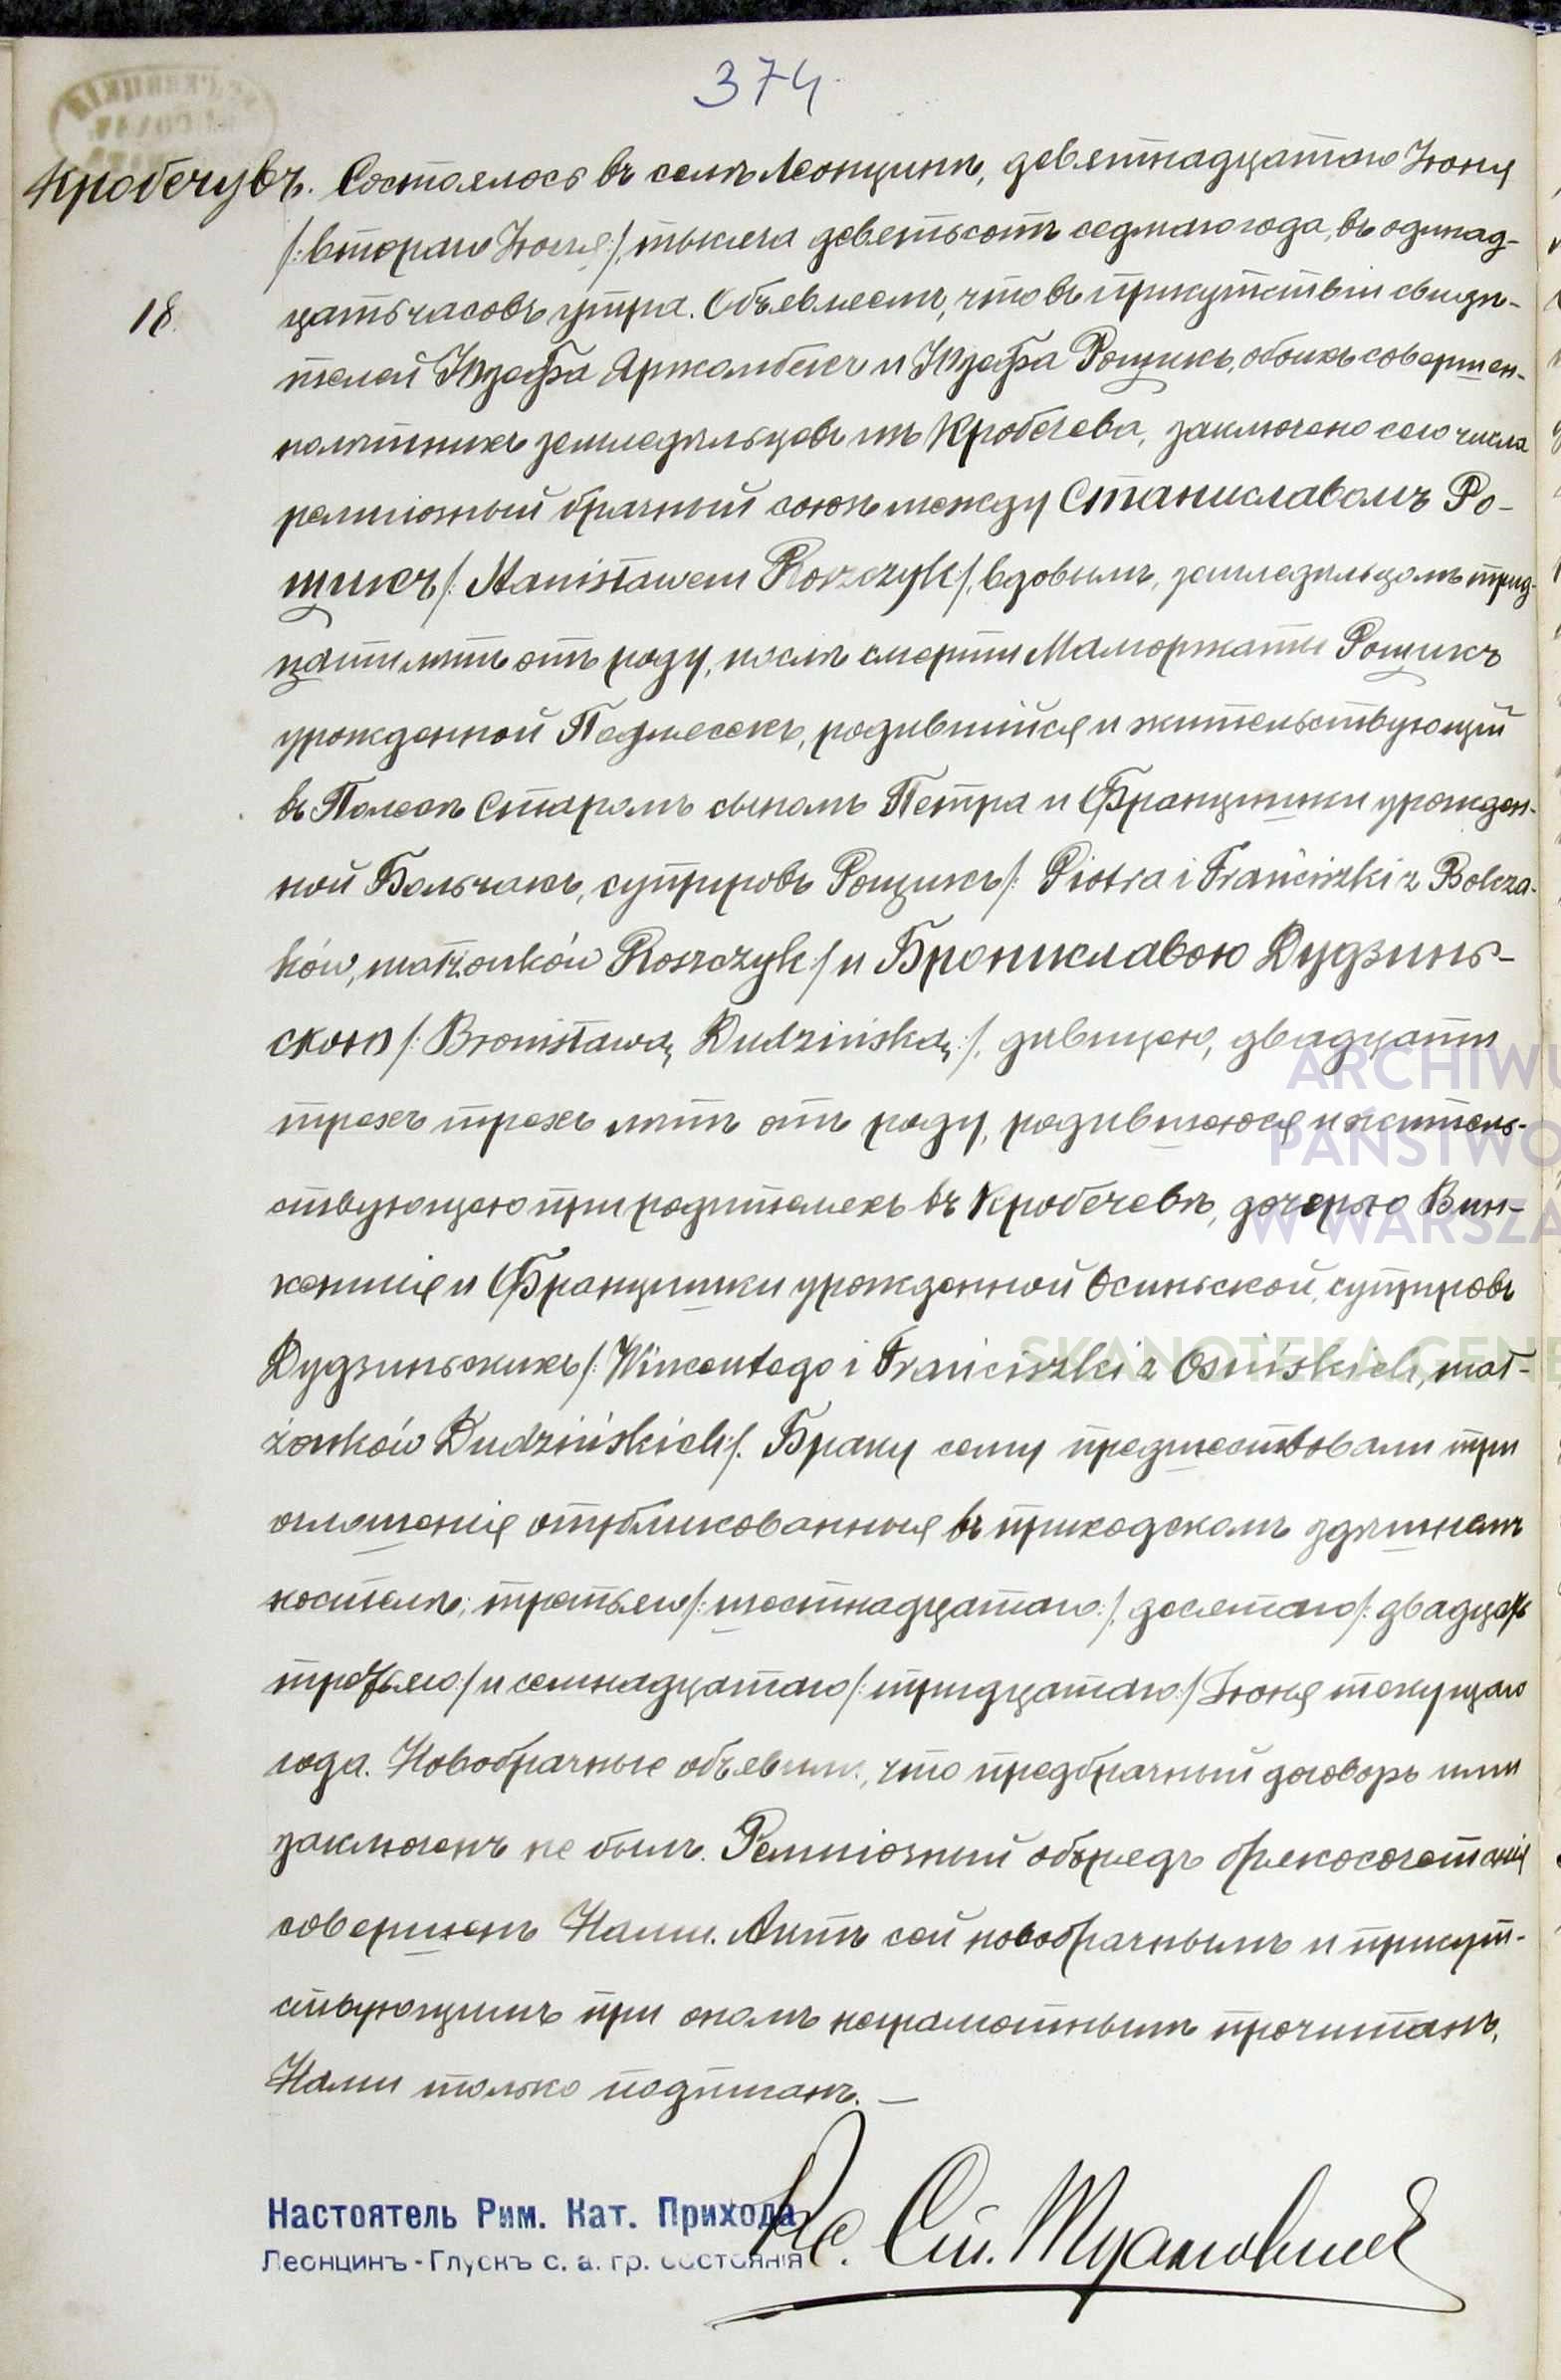 374
Кробечувъ. Состоялось въ селѣ Леонцинѣ, девятнадцатаго Іюня
18.
/:втораго Іюля:/ тысяча девятьсотъ седмаго года, въ одинад-
цать часовъ утра. Объявляемъ, что въ присутствіи свидѣ-
телей Юзефа Аркамбекъ и Юзефа Рощикъ, обоихъ совершен-
нолѣтнихъ земледѣльцевъ изъ Кробечева, заключено сего числа
религіозный брачный союзъ между Станиславомъ Ро-
щикъ /:Stanisławem Roszczyk:/, вдовымъ, земледѣльцомъ трид-
цати лѣтъ отъ роду, послѣ смерти Малгоржаты Рощикъ
урожденной Подлесекъ, родившійся и жительствующій
въ Полесѣ Старомъ сыномъ Петра и Францишки урожден-
ной Больчакъ, супруговъ Рощикъ /: Piotra i Franciszki z Bolcza-
ków, małżonków Roszczyk:/ и Брониславою Дудзинь-
скою /: Bronisławą Dudzińską:/, дѣвицею, двадцати
трехъ трехъ лѣтъ отъ роду, родившеюся и житель-
ствующею при родителяхъ въ Кробечевѣ, дочерью Вин-
кентія и Францишки урожденной Осиньской, супруговъ
Дудзиньскихъ /: Wincentego i Franciszki z Osińskich, mał-
żonków Dudzińskich:/. Браку сему предшествовали три
оглашенія опубликованныя въ приходскомъ здѣшнемъ
костелѣ; третьяго /:шестнадцатаго:/, десятаго /: двадцать
третьяго:/ и семнадцатаго /:тридцатаго:/ Іюня текущаго
года. Новобрачные объявили, что предбрачный договоръ ими
заключенъ не былъ. Религіозный обрядъ бракосочетанія
совершенъ Нами. Актъ сей новобрачнымъ и присут-
ствующимъ при ономъ неграмотнымъ прочитанъ,
Нами только подписанъ. —
Настоятель Рим. Кат. Прихода
Леонцинъ-Глускъ с. а. гр. состоянія
Кс. Ст.
ARCHIWU
PAŃSTWO
W WARSZA
SKANOTEKA GENE